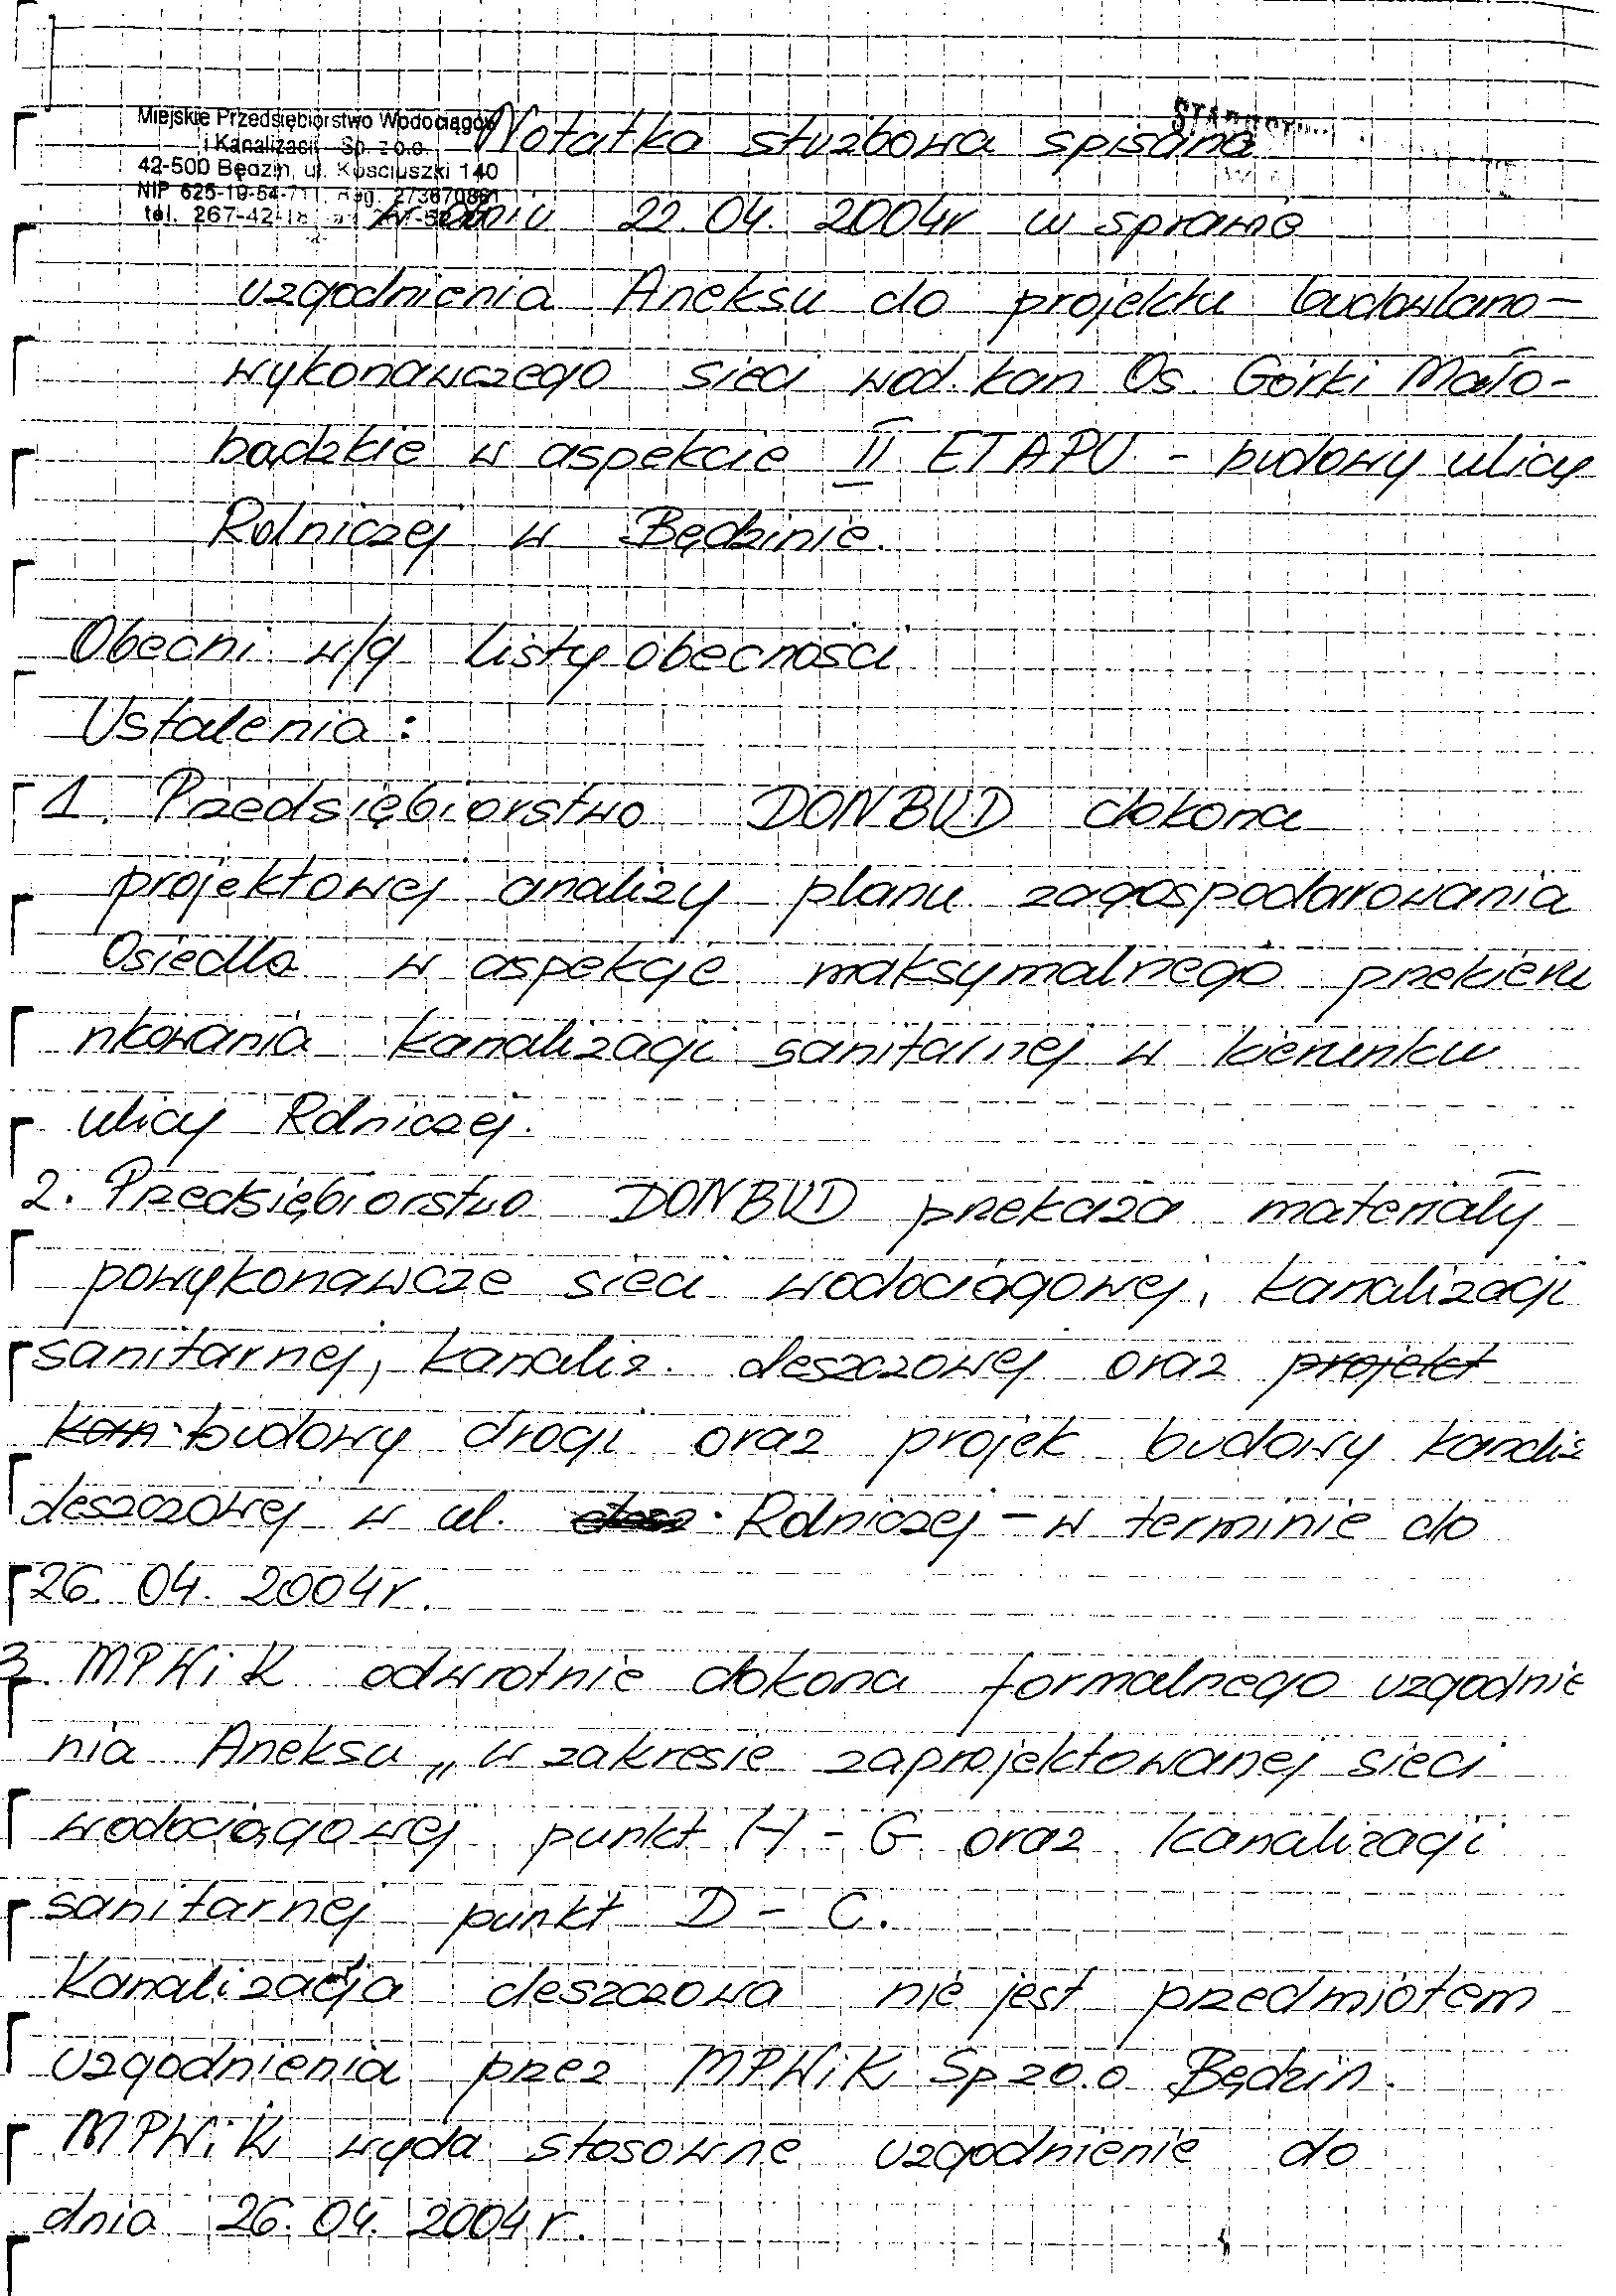 Miejskie Przedsiębiorstwo Wodociągów
i Kanalizacji Sp. z o.o.
42-500 Będzin, ul. Kościuszki 140
NIP 625-10-54-711
tel. 267-42-18
Notatka służbowa spisana
w dniu 22.04.2004r w sprawie
uzgodnienia Aneksu do projektu budowlano-
wykonawczego sieci wod. kan Os. Górki Mało-
bądzkie w aspekcie II ETAPU - budowy ulicy
Rolniczej w Będzinie.
Obecni w/g listy obecności
Ustalenia:
1. Przedsiębiorstwo DONBUD dokona
projektowej analizy planu zagospodarowania
Osiedla w aspekcje maksymalnego przekieru
nkowania kanalizacji sanitarnej w kierunku
ulicy Rolniczej.
2. Przedsiębiorstwo DONBUD przekaza materiały
powykonawcze sieci wodociągowej, kanalizacji
sanitarnej, kanaliz. deszczowej oraz projekt
kan. budowy drogi oraz projek budowy kanaliz
deszczowej w ul. Rolniczej - w terminie do
26. 04. 2004r.
3. MPWiK odwrotnie dokona formalnego uzgodnie
nia Aneksu „ w zakresie zaprojektowanej sieci
wodociągowej punkt H - G oraz kanalizacji
sanitarnej punkt D - C.
Kanalizacja deszczowa nie jest przedmiotem
uzgodnienia przez MPWiK Sp z o.o Będzin.
MPWiK wyda stosowne uzgodnienie do
dnia 26.04. 2004r.